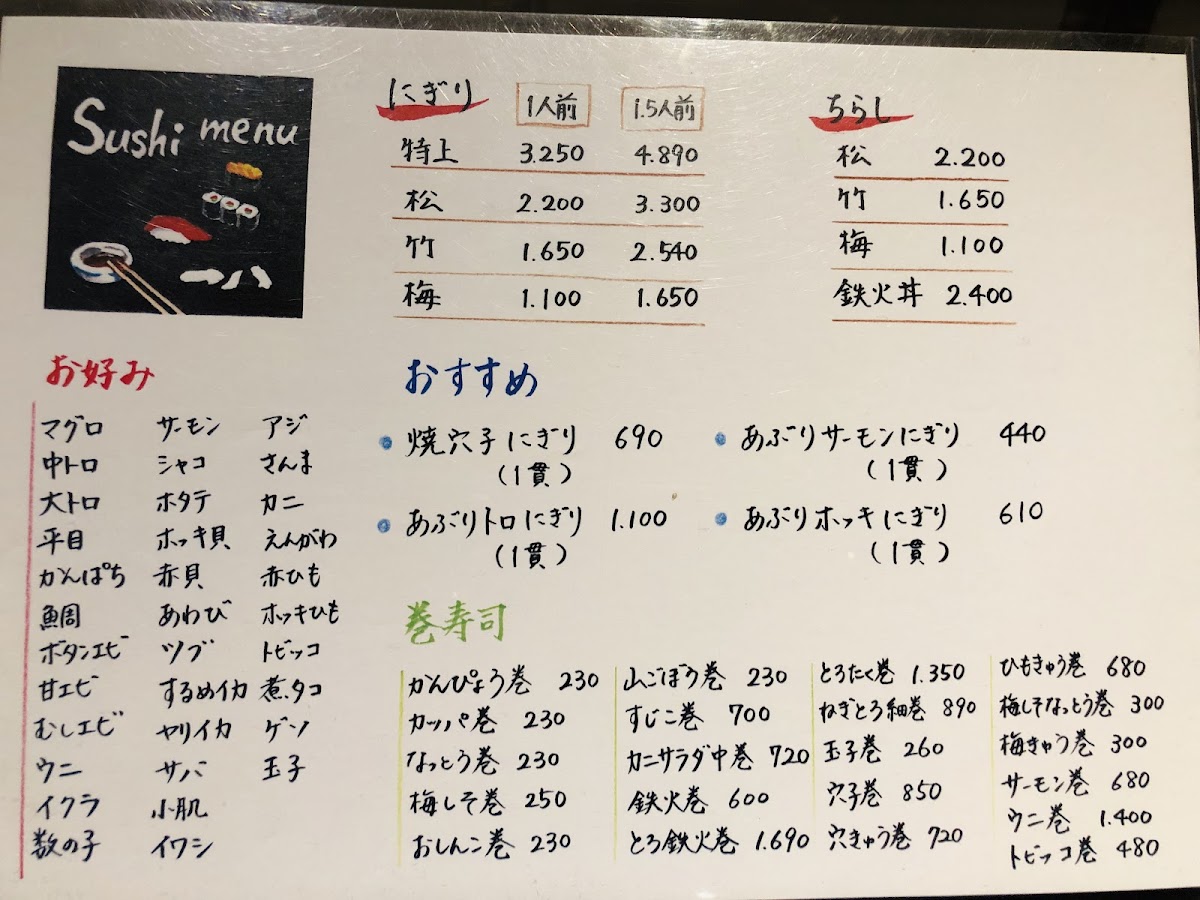 Sushi menu
一八
にぎり 1人前 1.5人前
特上 3.250 4.890
松 2.200 3.300
竹 1.650 2.540
梅 1.100 1.650
ちらし
松 2.200
竹 1.650
梅 1.100
鉄火丼 2.400
お好み
マグロ サーモン アジ
中トロ シャコ さんま
大トロ ホタテ カニ
平目 ホッキ貝 えんがわ
かんぱち 赤貝 赤ひも
鯛 あわび ホッキひも
ボタンエビ ツブ トビッコ
甘エビ するめイカ 煮タコ
むしエビ ヤリイカ ゲソ
ウニ サバ 玉子
イクラ 小肌
数の子 イワシ
おすすめ
焼穴子にぎり 690
(1貫)
あぶりトロにぎり 1.100
(1貫)
あぶりサーモンにぎり 440
(1貫)
あぶりホッキにぎり 610
(1貫)
巻寿司
かんぴょう巻 230
カッパ巻 230
なっとう巻 230
梅しそ巻 250
おしんこ巻 230
山ごぼう巻 230
すじこ巻 700
カニサラダ中巻 720
鉄火巻 600
とろ鉄火巻 1.690
とろたく巻 1.350
ねぎとろ細巻 890
玉子巻 260
穴子巻 850
穴きゅう巻 720
ひもきゅう巻 680
梅しそなっとう巻 300
梅きゅう巻 300
サーモン巻 680
ウニ巻 1.400
トビッコ巻 480